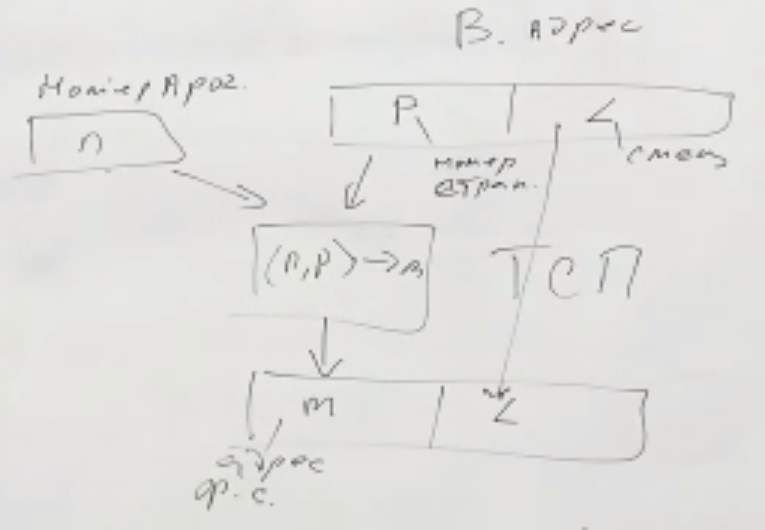 В. адрес
Номер прог.
n
P
L
номер
стран.
смещ
(n,P)→m
ТСП
m
L
адрес
ф.с.